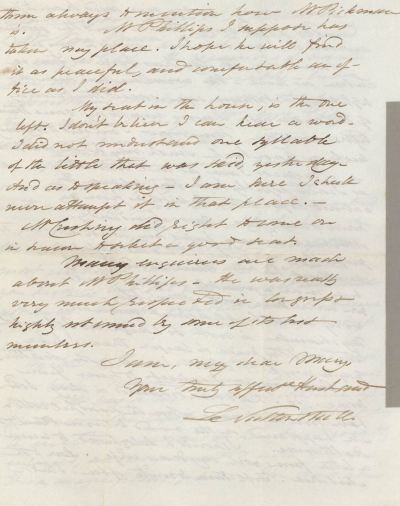 them always to mention how Mr Pickman
is. Mr Phillips I suppose has
taken my place. I hope he will find
it as peaceful, and comfortable an of-
fice as I did.
My seat in the house, is the one
left. I don't believe I can hear a word.
I did not understand one syllable
of the little that was said, yesterday.
And as to speaking - I am sure I shall
never attempt it in that place. -
Mr Cushing did right to come on
in season to obtain a good seat.
Many enquiries are made
about Mr Phillips - He was really
very much respected in Congress &
highly esteemed by some of its best
members.
I am, my dear Mary
Your truly affecte Husband
L Saltonstall.